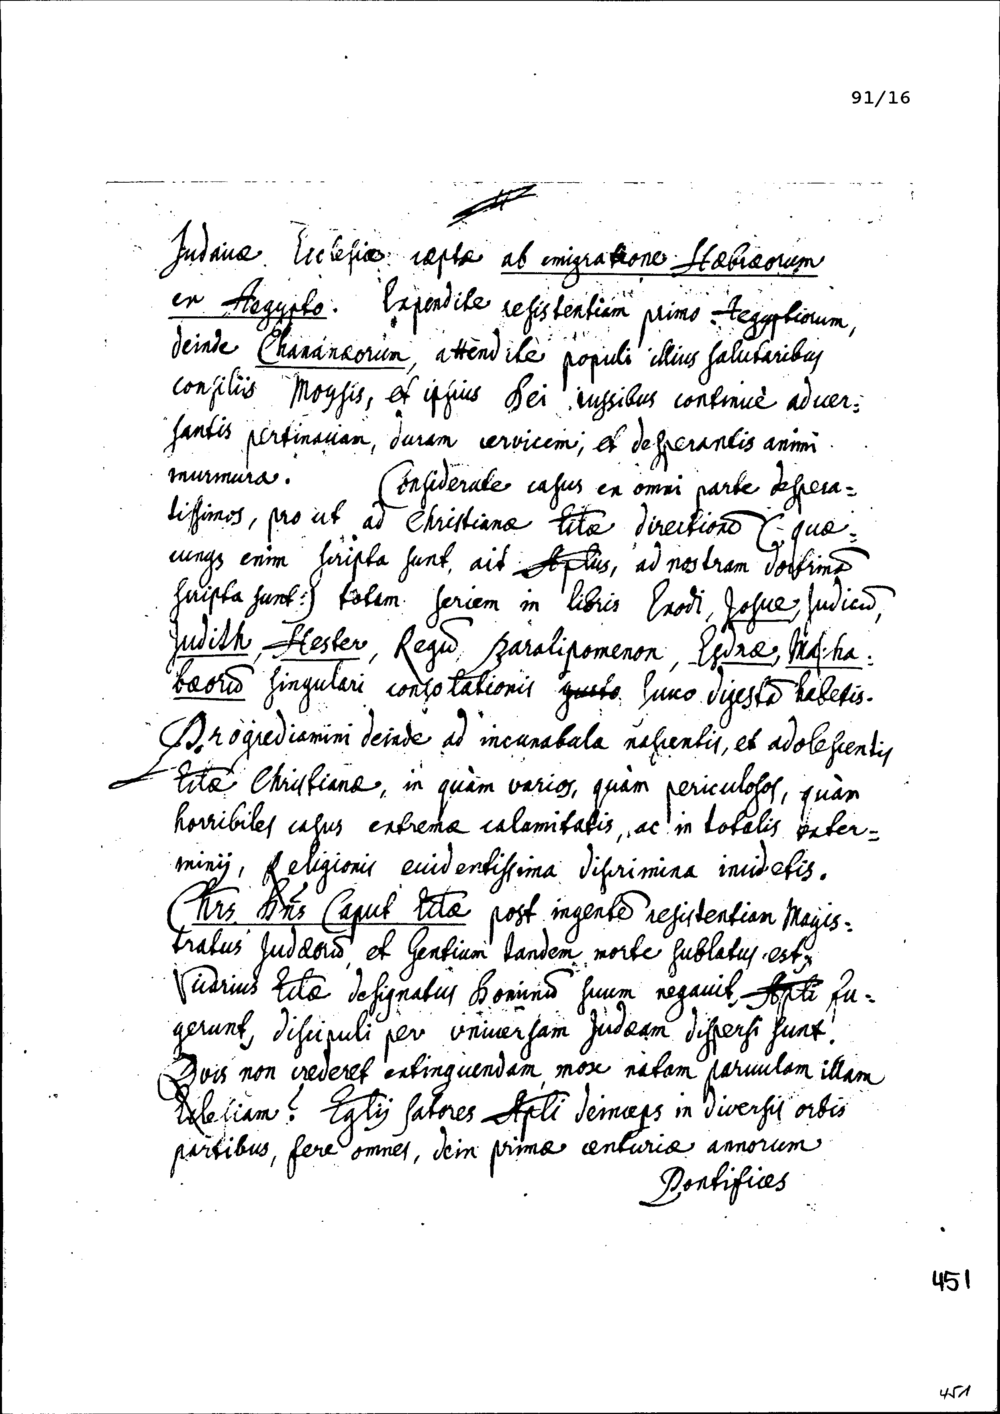 91/16
Judaicæ Ecclesiæ cæptæ ab emigratione Hæbræorum
ex Aegypto. Expendite resistentiam primo Aegyptiorum,
deinde Chananæorum, attendite populi illius salutaribus
consiliis Moysis, et ipsius Dei iussibus continuè aduer=
santis pertinaciam, duram cervicem, et desperantis animi
murmura. Considerate casus ex omni parte despera=
tissimos, pro ut ad Christianæ Eccłæ directionē (: quæ=
cunqs enim scripta sunt, ait Aplus, ad nostram doctrinā
scripta sunt:) totam seriem in libris Exodi, Josue, Judicū,
Judith, Hester, Regū, Paralipomenon, Esdræ, Macha=
bæorū singulari consolationis gusto suco digestā habetis.
Progrediamini deinde ad incunabula nascentis, et adolescentis
Eccłæ Christianæ, in quàm varios, quàm periculosos, quàm
horribiles casus extremæ calamitatis, ac in totalis exter=
minij, Religionis euidentissima discrimina incidetis.
Chrs Dns Caput Eccłæ post ingentē resistentiam Magis=
tratus Judæorū, et Gentium tandem morte sublatus est;
Vicarius Eccłæ designatus Dominū suum negauit, Apli fu=
gerunt, discipuli per vniuersam Judæam dispersi sunt!
Quis non crederet extinguendam mox natam paruulam illam
Ecclesiam? Egtij satores Apli deinceps in diversis orbis
partibus, fere omnes, dein primæ centuriæ annorum
Pontifices
451
451